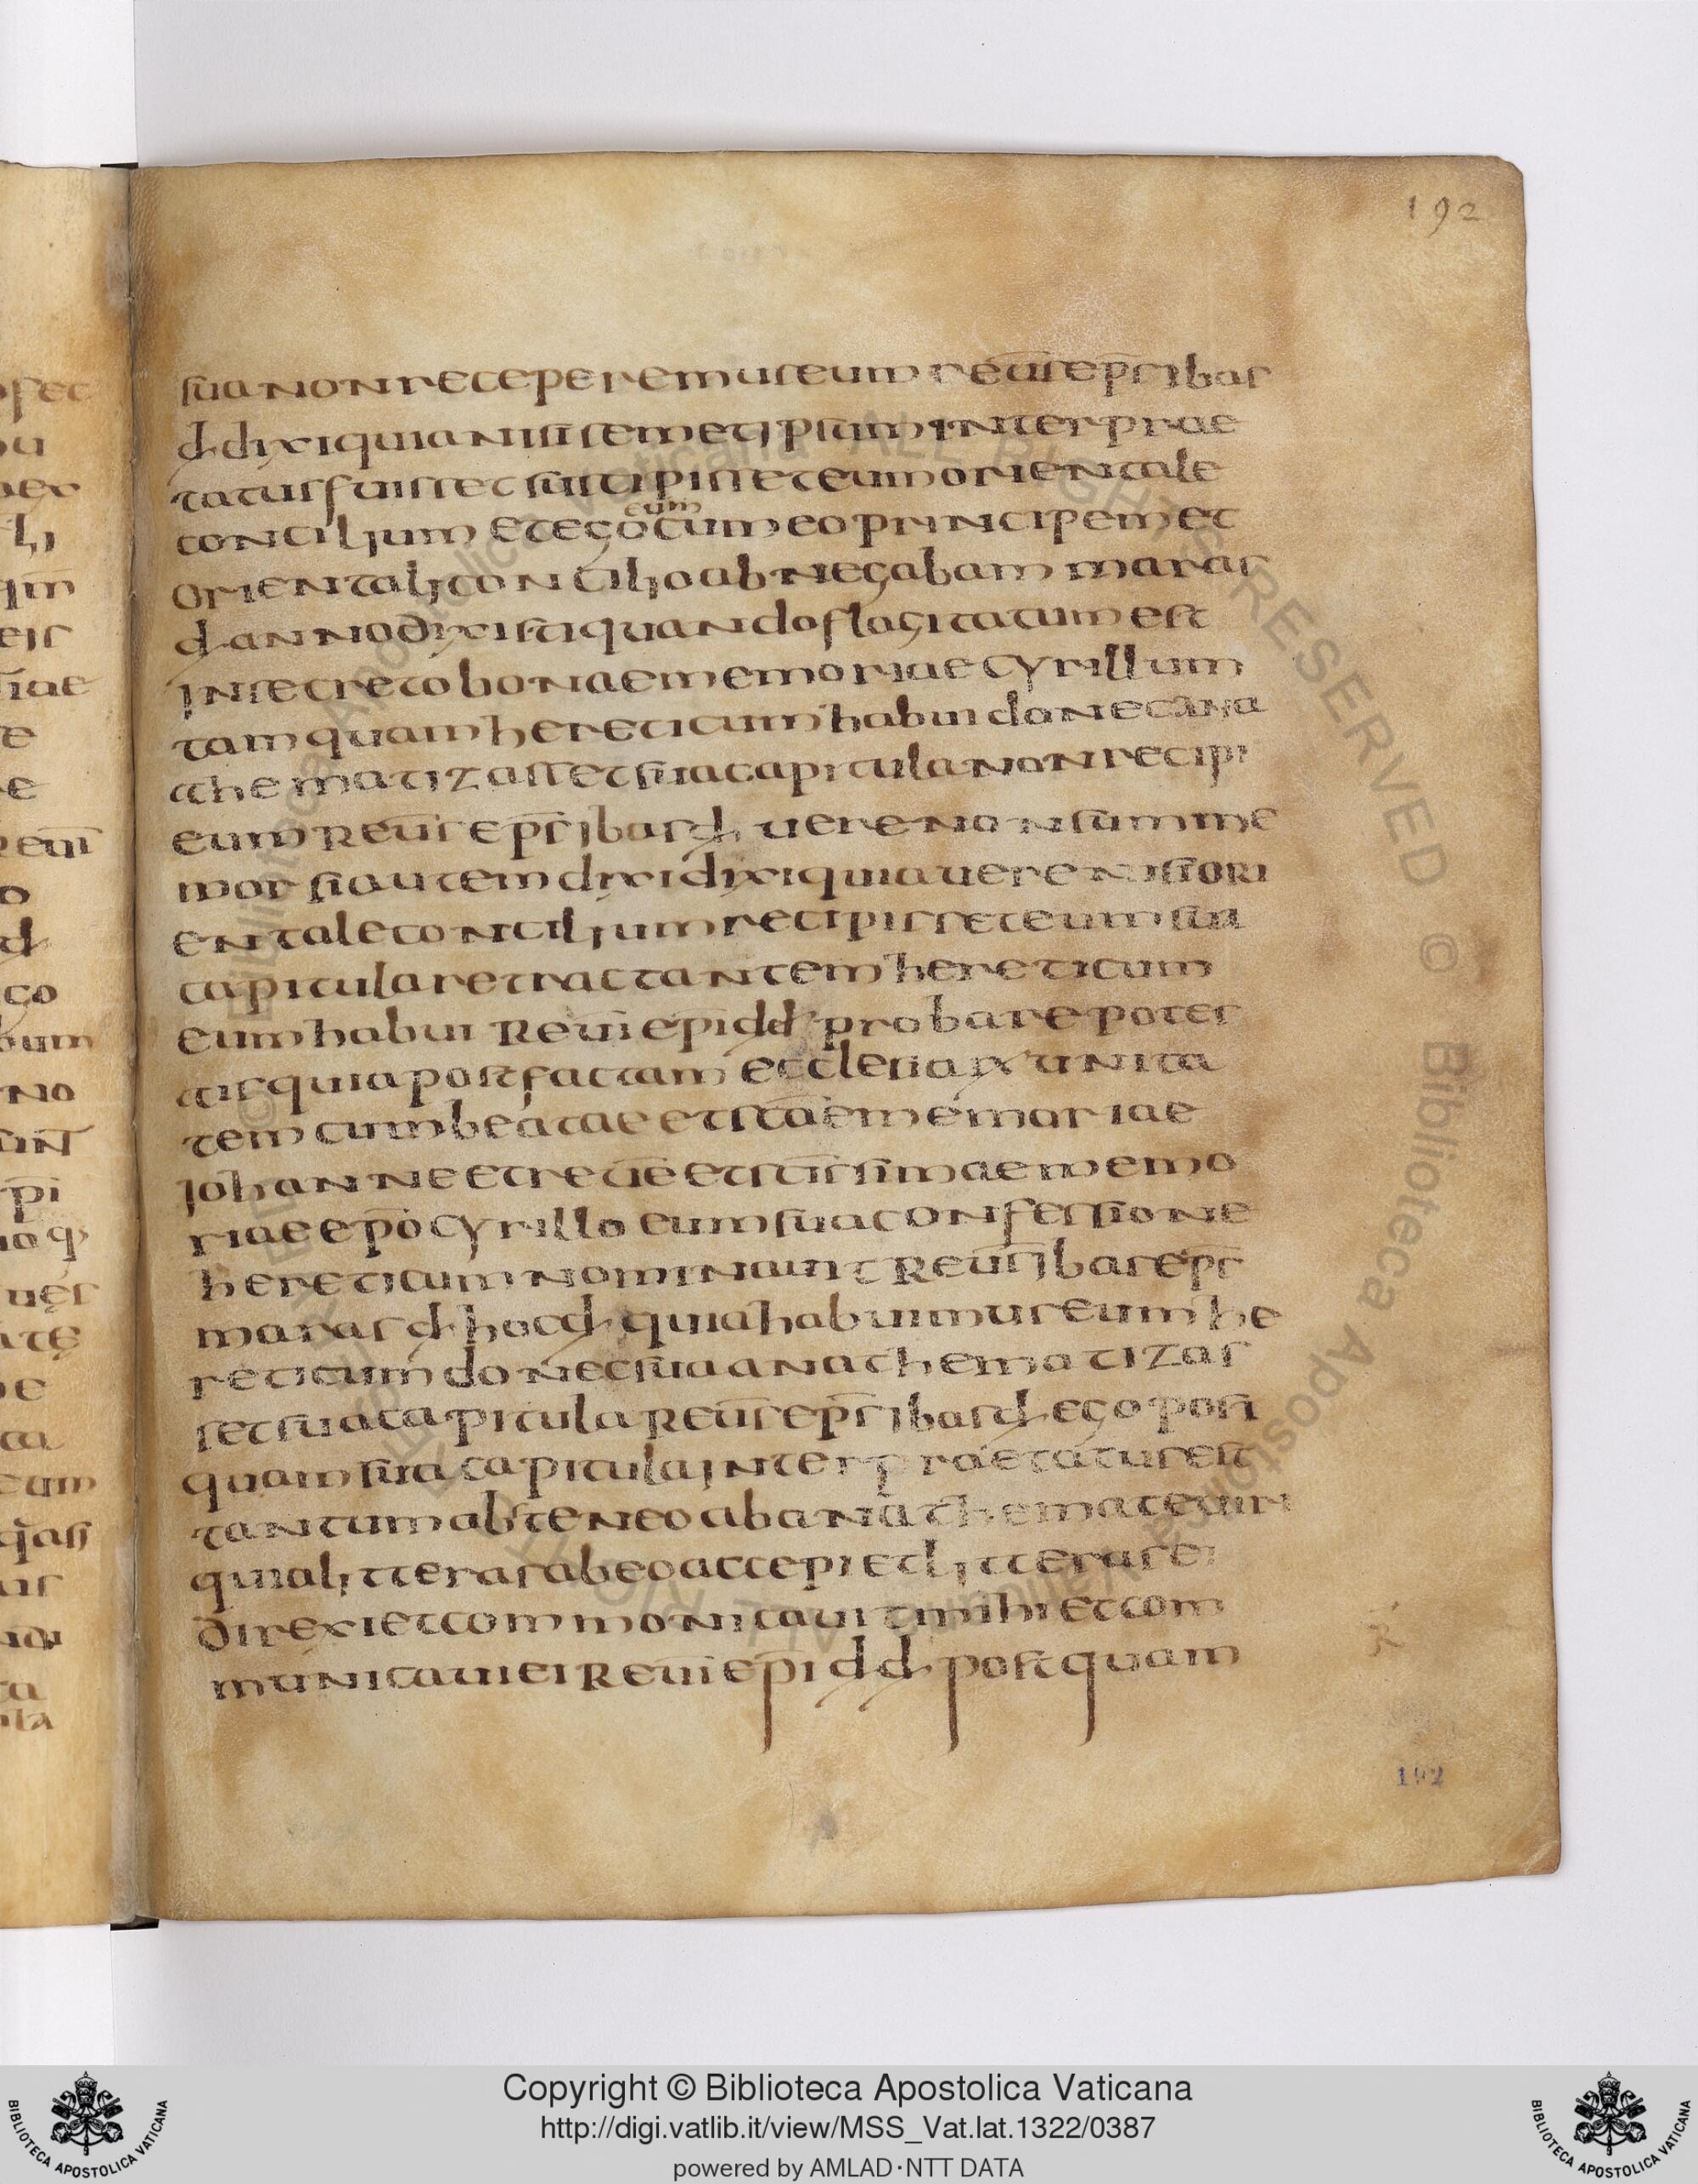 192
sua non receperemus eum reūs ep̄s ibas
đ dixi quia nisi semetipsum interprae
tatus fuisset suscipisset eum orientale
eum
concilium et ego cum eo principem et
orientali concilio abnegabam maras
đ an no dixisti quando flagitatum est
in secreto bonae memoriae cyrillum
tamquam hereticum habui donec ana
thematizasset sua capitula non recipi
eum reūs ep̄s ibas đ vere non sum me
mor si autem dixi dixi quia vere nisi ori
entale concilium recipisset eum sua
capitula retractantem hereticum
eum habui reūi epi dđ probare potes
tis quia post factam ecclesiarum unita
tem cum beatae et sc̄ae memoriae
iohanne et reūe et sc̄issimae memo
riae ep̄o cyrillo eum sua confessione
hereticum nominavit reūs ibas ep̄s
maras đ hoc đ quia habuimus eum he
reticum donec sua anathematizas
set sua capitula reūs ep̄s ibas đ ego post
quam sua capitula interpraetatus est
tantum absteneo ab anathemate
quia litteras ab eo accepi et litteras ei
direxi et commonicavit mihi et com
municavi ei reūi ep̄i dđ postquam
192
Copyright © Biblioteca Apostolica Vaticana
http://digi.vatlib.it/view/MSS_Vat.lat.1322/0387
powered by AMLAD·NTT DATA
BIBLIOTECA APOSTOLICA VATICANA
BIBLIOTECA APOSTOLICA VATICANA